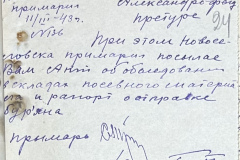 примарии
11/III-43 г.
№ 136
Александрфельд
претуре
94
При этом Новосе-
ловска примария посылае
Вам Акт об обследовании
складах посевного материа
и рапорт о отправке
бурьяна
примарь